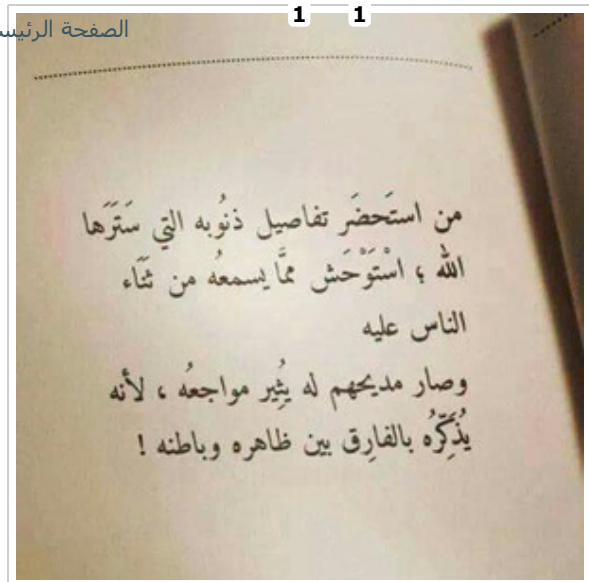 1 1
من استَحضَر تفاصيل ذنُوبه التي سَتَرَها
الله ؛ اسْتَوْحَش ممَّا يسمعُه من ثَنَاء
الناس عليه
وصار مديحهم له يثِير مواجعُه ، لأنه
يُذَكِّرُه بالفارِق بين ظاهره وباطنه !
الصفحة